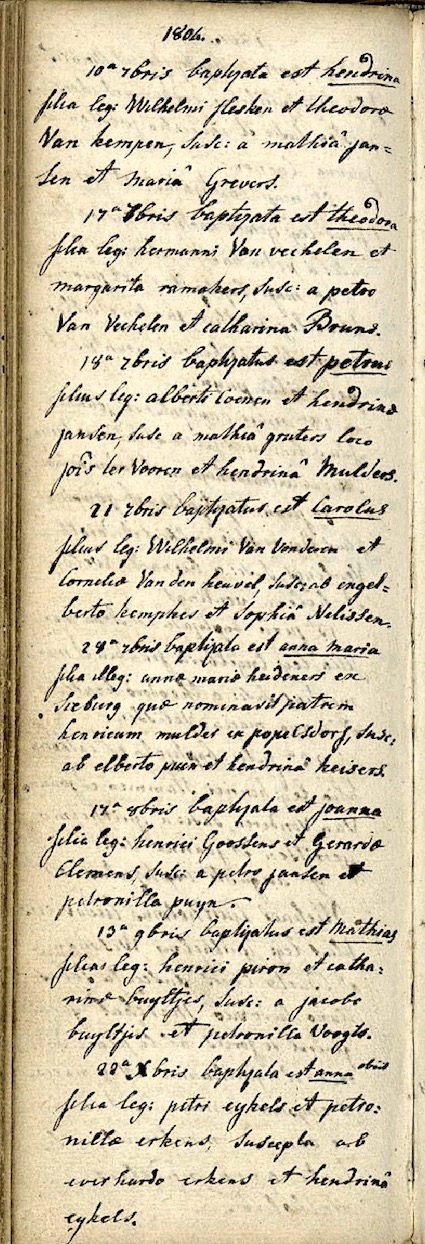 1804.
10ª 7bris baptizata est hendrina
filia leg: Wilhelmi flesken et theodoræ
Van kempen, susc: â mathiâ jan=
sen et mariâ Grevers.
17ª 7bris baptizata est theodora
filia leg: hermanni Van vechelen et
margarita ramakers, susc: a petro
Van Vechelen et catharina Bruns.
18ª 7bris baptizatus est petrus
filius leg: alberti Coenen et hendrinæ
jansen, susc a mathiâ gruters loco
joîs ter Vooren et hendrinâ Mulders.
21 7bris baptizatus est Carolus
filius leg: Wilhelmi Van Vonderen et
Corneliæ Van den heuvel, susc: ab engel=
berto kemphes et Sophiâ Nelissen.
28ª 7bris baptizata est anna maria
filia illeg: annæ mariæ heideners ex
Sieburg quæ nominavit patrem
henricum mulder ex popelsdorf, susc:
ab elberto puin et hendrinâ keisers.
17ª 8bris baptizata est joanna
filia leg: henrici Goossens et Gerardæ
Clemens, susc: a petro jansen et
petronilla puyn.
13ª 9bris baptizatus est Mathias
filius leg: henrici piron et catha=
rinæ buyltjes, susc: a jacobo
buyltjes et petronilla Voogts.
22ª Xbris baptizata est anna obiit
filia leg: petri eykels et petro:
nillæ erkens, suscepta ab
everhardo erkens et hendrinâ
eykels.